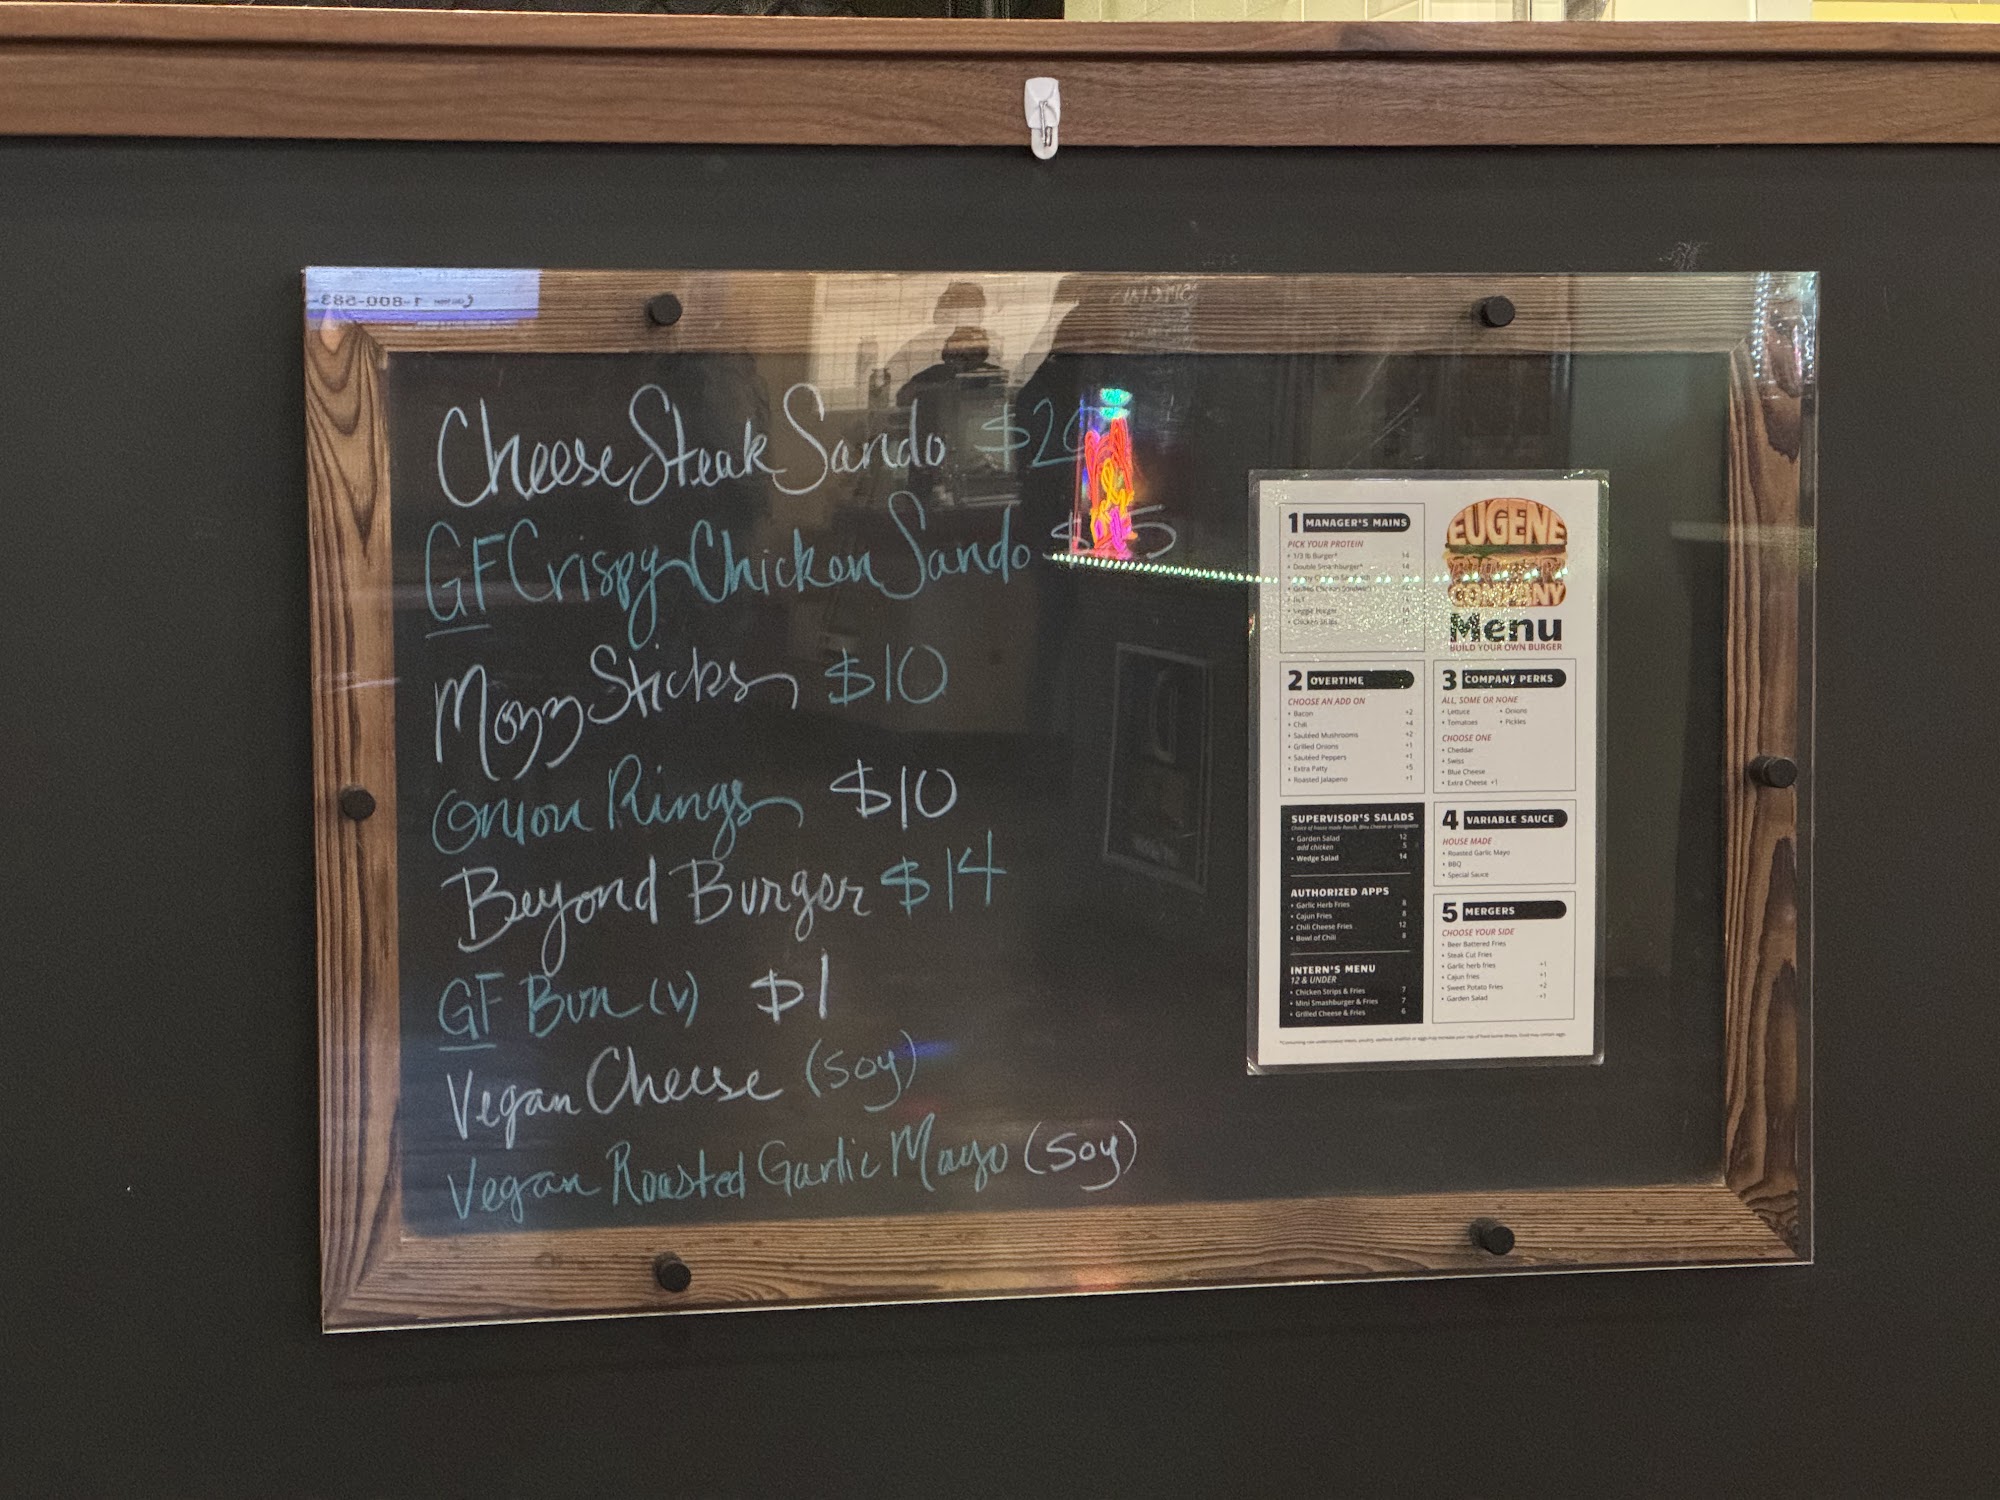 Cheese Steak Sando $20
GF Crispy Chicken Sando
Mozz Sticks $10
Onion Rings $10
Beyond Burger $14
GF Bun (v) $1
Vegan Cheese (soy)
Vegan Roasted Garlic Mayo (soy)
EUGENE
COMPANY
Menu
BUILD YOUR OWN BURGER
1 MANAGER'S MAINS
PICK YOUR PROTEIN
• 1/3 lb Burger* 14
• Double Smashburger* 14
• Grilled Chicken Sandwich
• Veggie Burger 14
• Chicken Strips
2 OVERTIME
CHOOSE AN ADD ON
• Bacon +2
• Chili +4
• Sautéed Mushrooms +2
• Grilled Onions +1
• Sautéed Peppers +1
• Extra Patty +5
• Roasted Jalapeno +1
3 COMPANY PERKS
ALL, SOME OR NONE
• Lettuce • Onions
• Tomatoes • Pickles
CHOOSE ONE
• Cheddar
• Swiss
• Blue Cheese
• Extra Cheese +1
SUPERVISOR'S SALADS
Choice of house made Ranch, Bleu Cheese or Vinaigrette
• Garden Salad 12
add chicken 5
• Wedge Salad 14
AUTHORIZED APPS
• Garlic Herb Fries 8
• Cajun Fries 8
• Chili Cheese Fries 12
• Bowl of Chili 8
INTERN'S MENU
12 & UNDER
• Chicken Strips & Fries 7
• Mini Smashburger & Fries 7
• Grilled Cheese & Fries 6
4 VARIABLE SAUCE
HOUSE MADE
• Roasted Garlic Mayo
• BBQ
• Special Sauce
5 MERGERS
CHOOSE YOUR SIDE
• Beer Battered Fries
• Steak Cut Fries
• Garlic herb fries +1
• Cajun fries +1
• Sweet Potato Fries +2
• Garden Salad +1